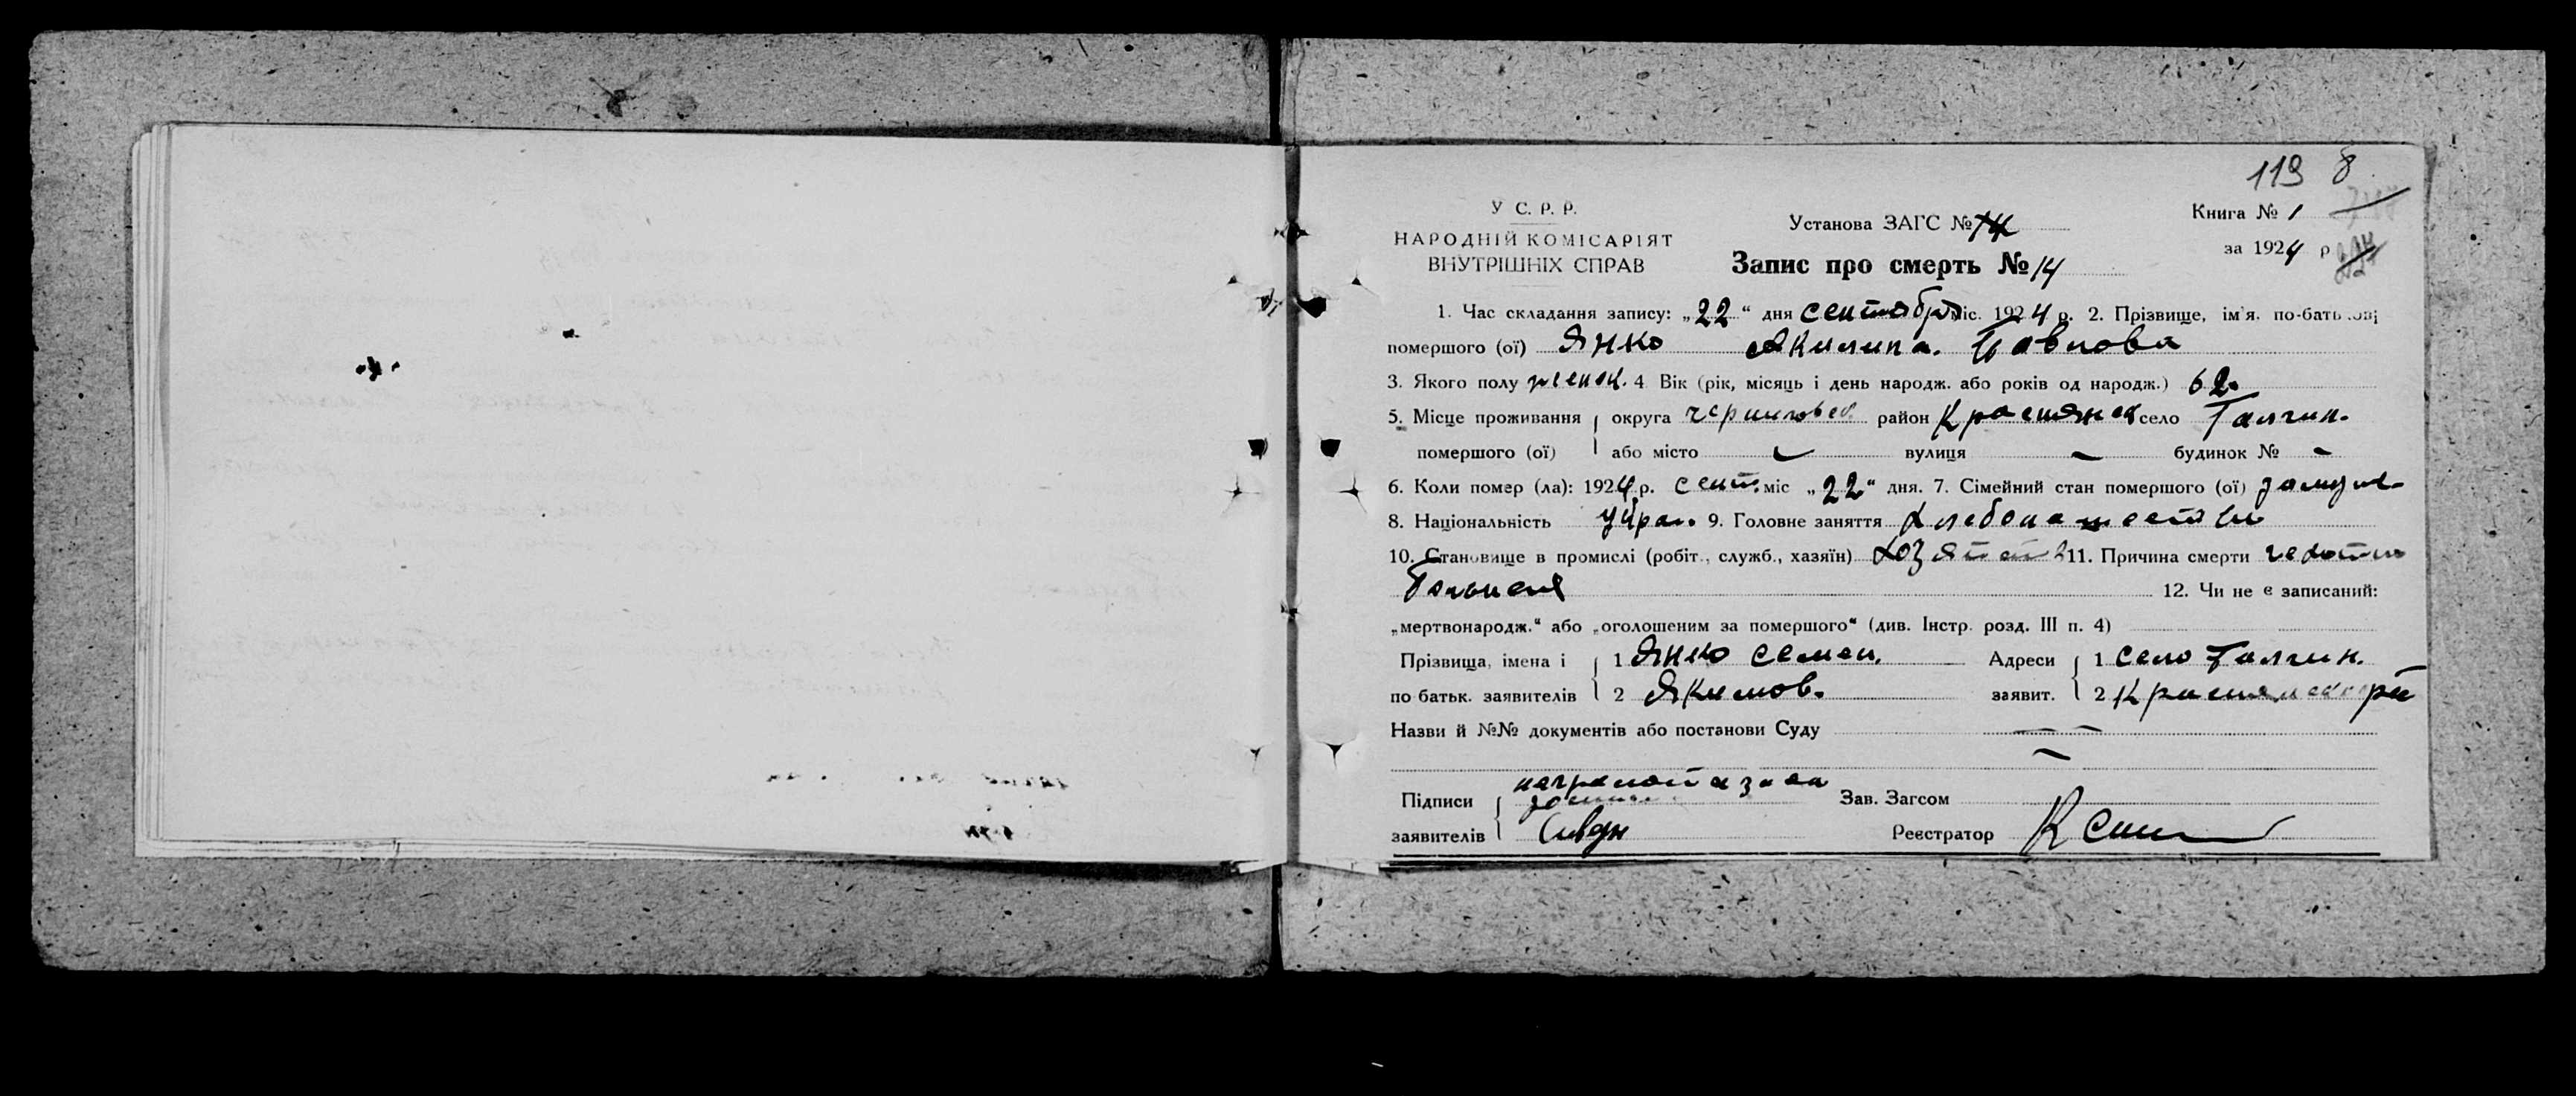 119 8
У С. Р. Р.
НАРОДНІЙ КОМІСАРІЯТ
ВНУТРІШНІХ СПРАВ
Установа ЗАГС № 14
Запис про смерть № 14
Книга № 1
за 1924 р
1. Час складання запису: „22“ дня сентября міс. 1924 р. 2. Прізвище, ім'я. по-батькові
помершого (ої) Янко Акилина. Павлова
3. Якого полу женск. 4 Вік (рік, місяць і день народж. або років од народж.) 62
5. Місце проживання округа Черниговск. район Крастянск село Талгин.
помершого (ої) або місто вулиця будинок № -
6. Коли помер (ла): 1924 р. сент. міс „22“ дня. 7. Сімейний стан помершого (ої) замуж.
8. Національність Укра. 9. Головне заняття Хлебопашество
10. Становище в промислі (робіт., служб., хазяїн) 11. Причина смерти
12. Чи не є записаний:
„мертвонародж.“ або „оголошеним за помершого“ (див. Інстр. розд. III п. 4)
Прізвища, імена і 1 Янко Семен. Адреси 1 село Талгин.
по батьк. заявителів 2 Якимов. заявит. 2
Назви й №№ документів або постанови Суду
Підписи Зав. Загсом
заявителів Реєстратор